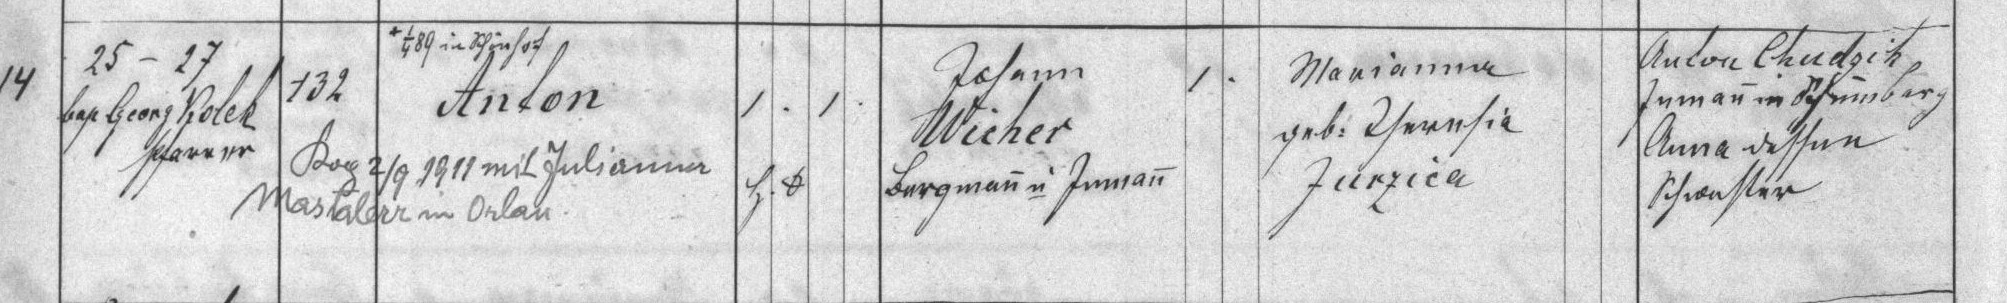 14
25 – 27
bap Georg Kolek
Pfarrer
132
* 1/4 89 in Schönhof
Anton
Kop 2/9 1911 mit Julianna
Mastalerz in Orlau.
1. 1.
Johann
Wicher
Bergmann̄ u Inmann̄
1.
Marianna
geb: Theresia
Jurzica
Anton Chudzik
Inman̄ in Schumbarg
Anna dessen
Schwester